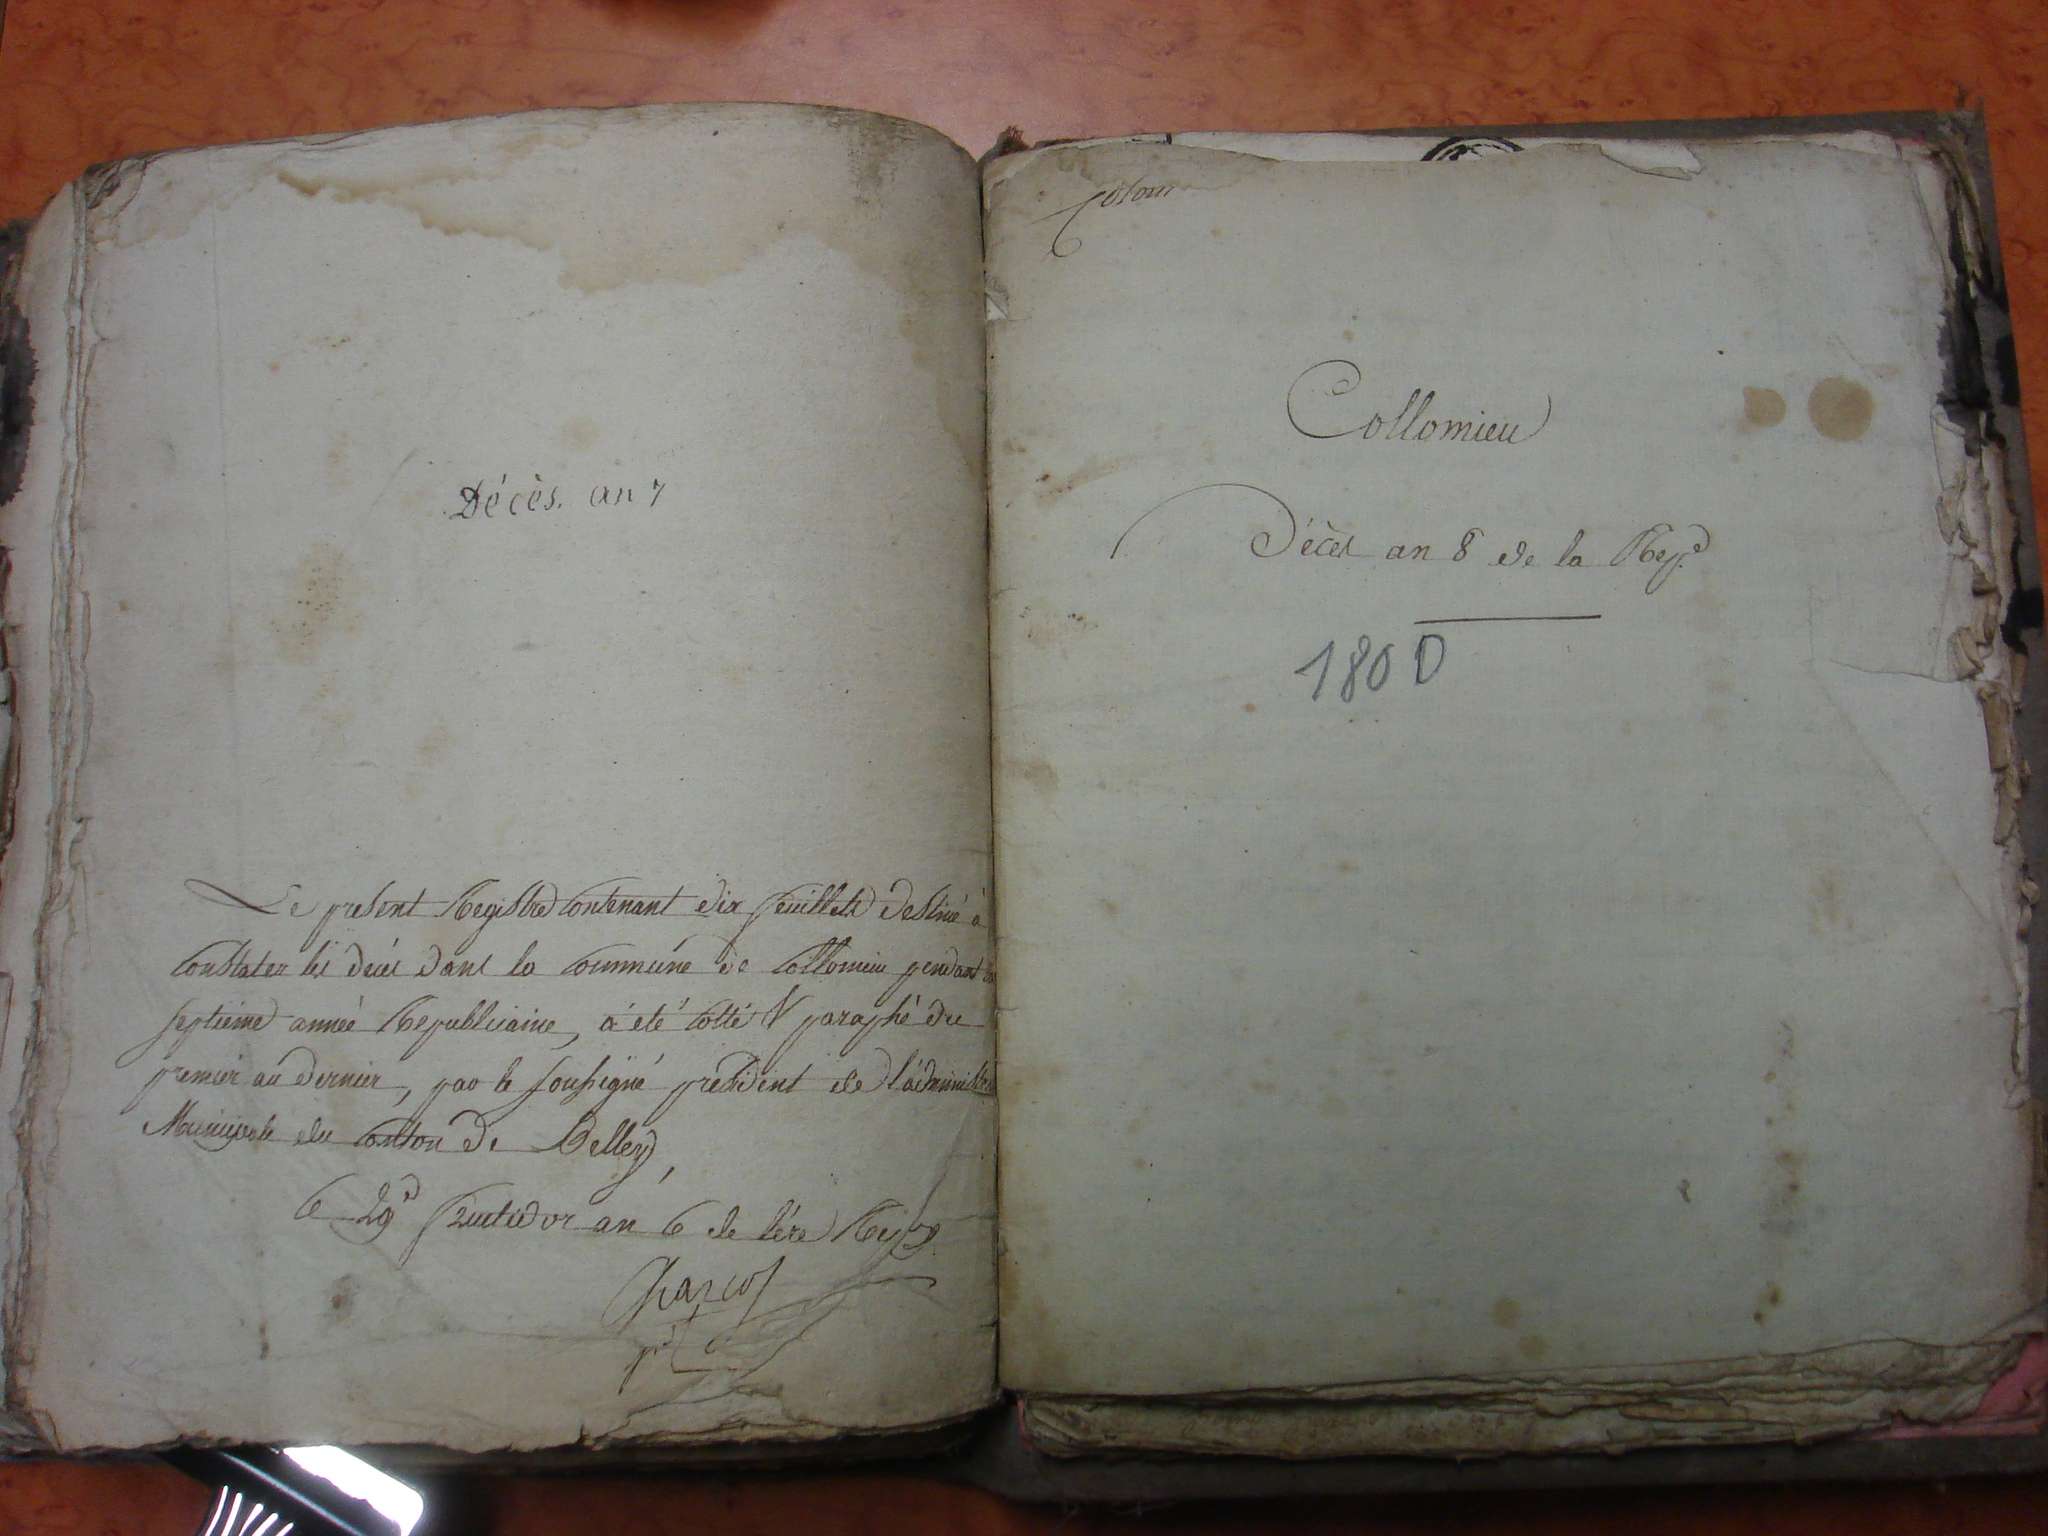 Décès. an 7
Le present Registre Contenant dix feuillets destiné à
Constater les décès dans la Commune de Collomieu pendant la
septieme année Republicaine, a été Cotté & paraphé du
premier au dernier, par le soussigné président de l'administ
Municipale du Canton de Belley,
le 29 fructidor an 6 de l'ére Rep
Colom
Collomieu
Décès an 8 de la Rep.e
1800